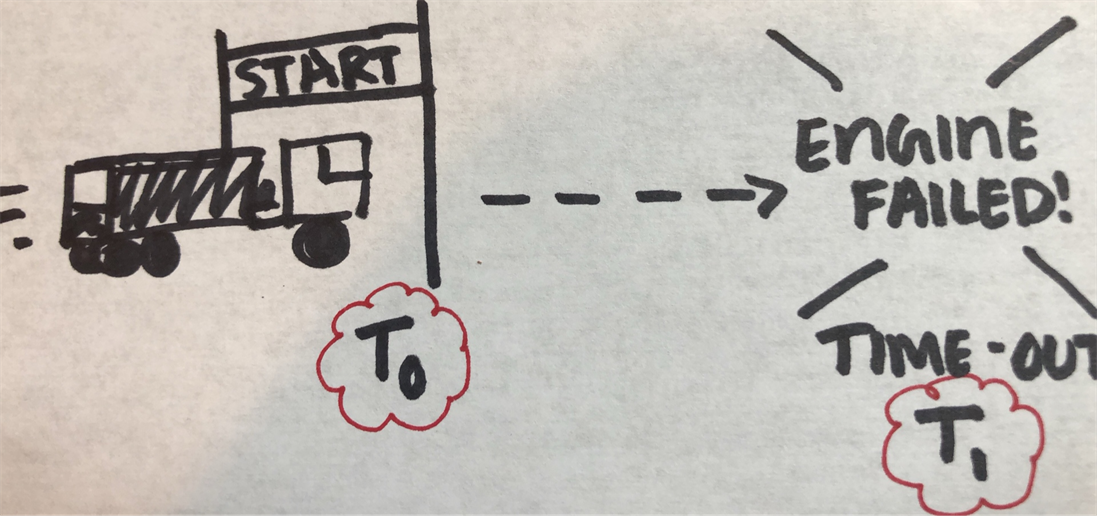 START
ENGINE
FAILED!
TIME-OUT
T0
T1